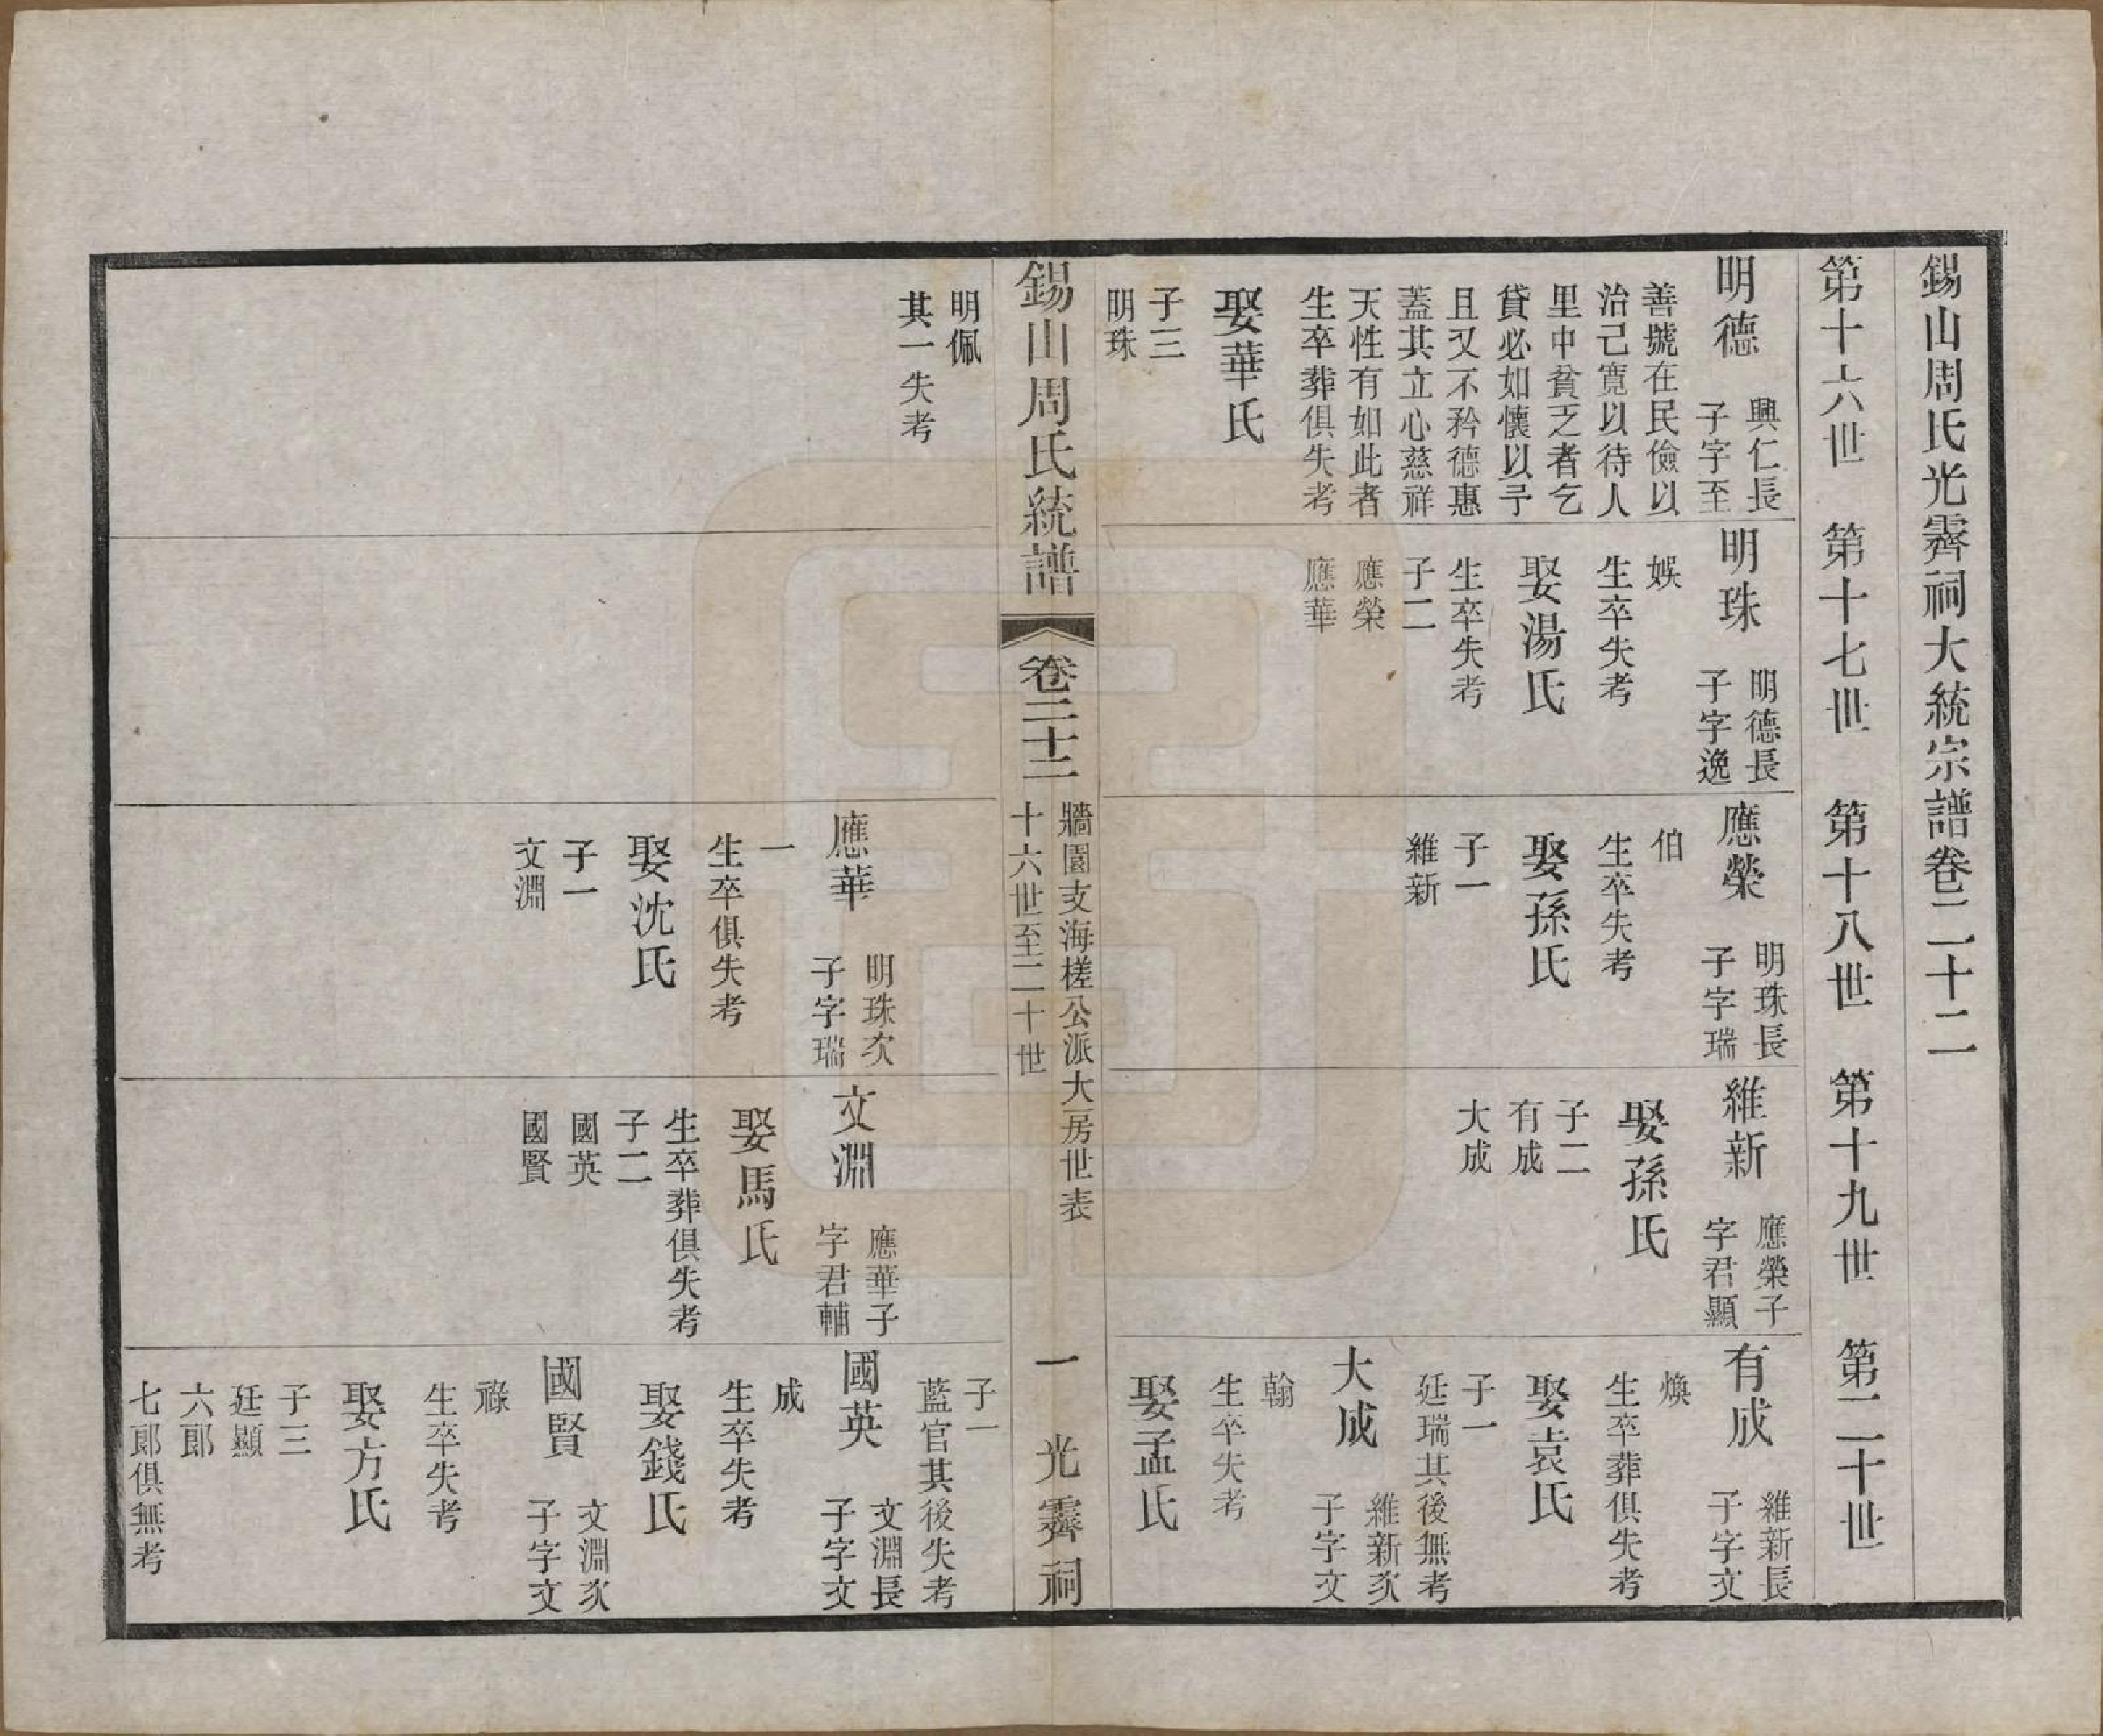 錫山周氏光霽祠大統宗譜卷二十二
第十六世
第十七世
第十八世
第十九世
第二十世
明德
興仁長
子字至
善號在民儉以
治己寬以待人
里中貧乏者乞
貸必如懷以予
且又不矜德惠
蓋其立心慈祥
天性有如此者
生卒葬俱失考
娶華氏
子三
明珠
明珠
明德長
子字逸
娛
生卒失考
娶湯氏
生卒失考
子二
應榮
應華
應榮
明珠長
子字瑞
伯
生卒失考
娶孫氏
子一
維新
維新
應榮子
字君顯
娶孫氏
子二
有成
大成
有成
維新長
子字文
煥
生卒葬俱失考
娶袁氏
子一
廷瑞其後無考
大成
維新次
子字文
翰
生卒失考
娶孟氏
錫山周氏統譜
卷二十二
牆園支海槎公派大房世表
十六世至二十世
一
光霽祠
明佩
其一失考
應華
明珠次
子字瑞
一
生卒俱失考
娶沈氏
子一
文淵
文淵
應華子
字君輔
娶馬氏
生卒葬俱失考
子二
國英
國賢
子一
藍官其後失考
國英
文淵長
子字文
成
生卒失考
娶錢氏
國賢
文淵次
子字文
祿
生卒失考
娶方氏
子三
廷顯
六郎
七郎俱無考